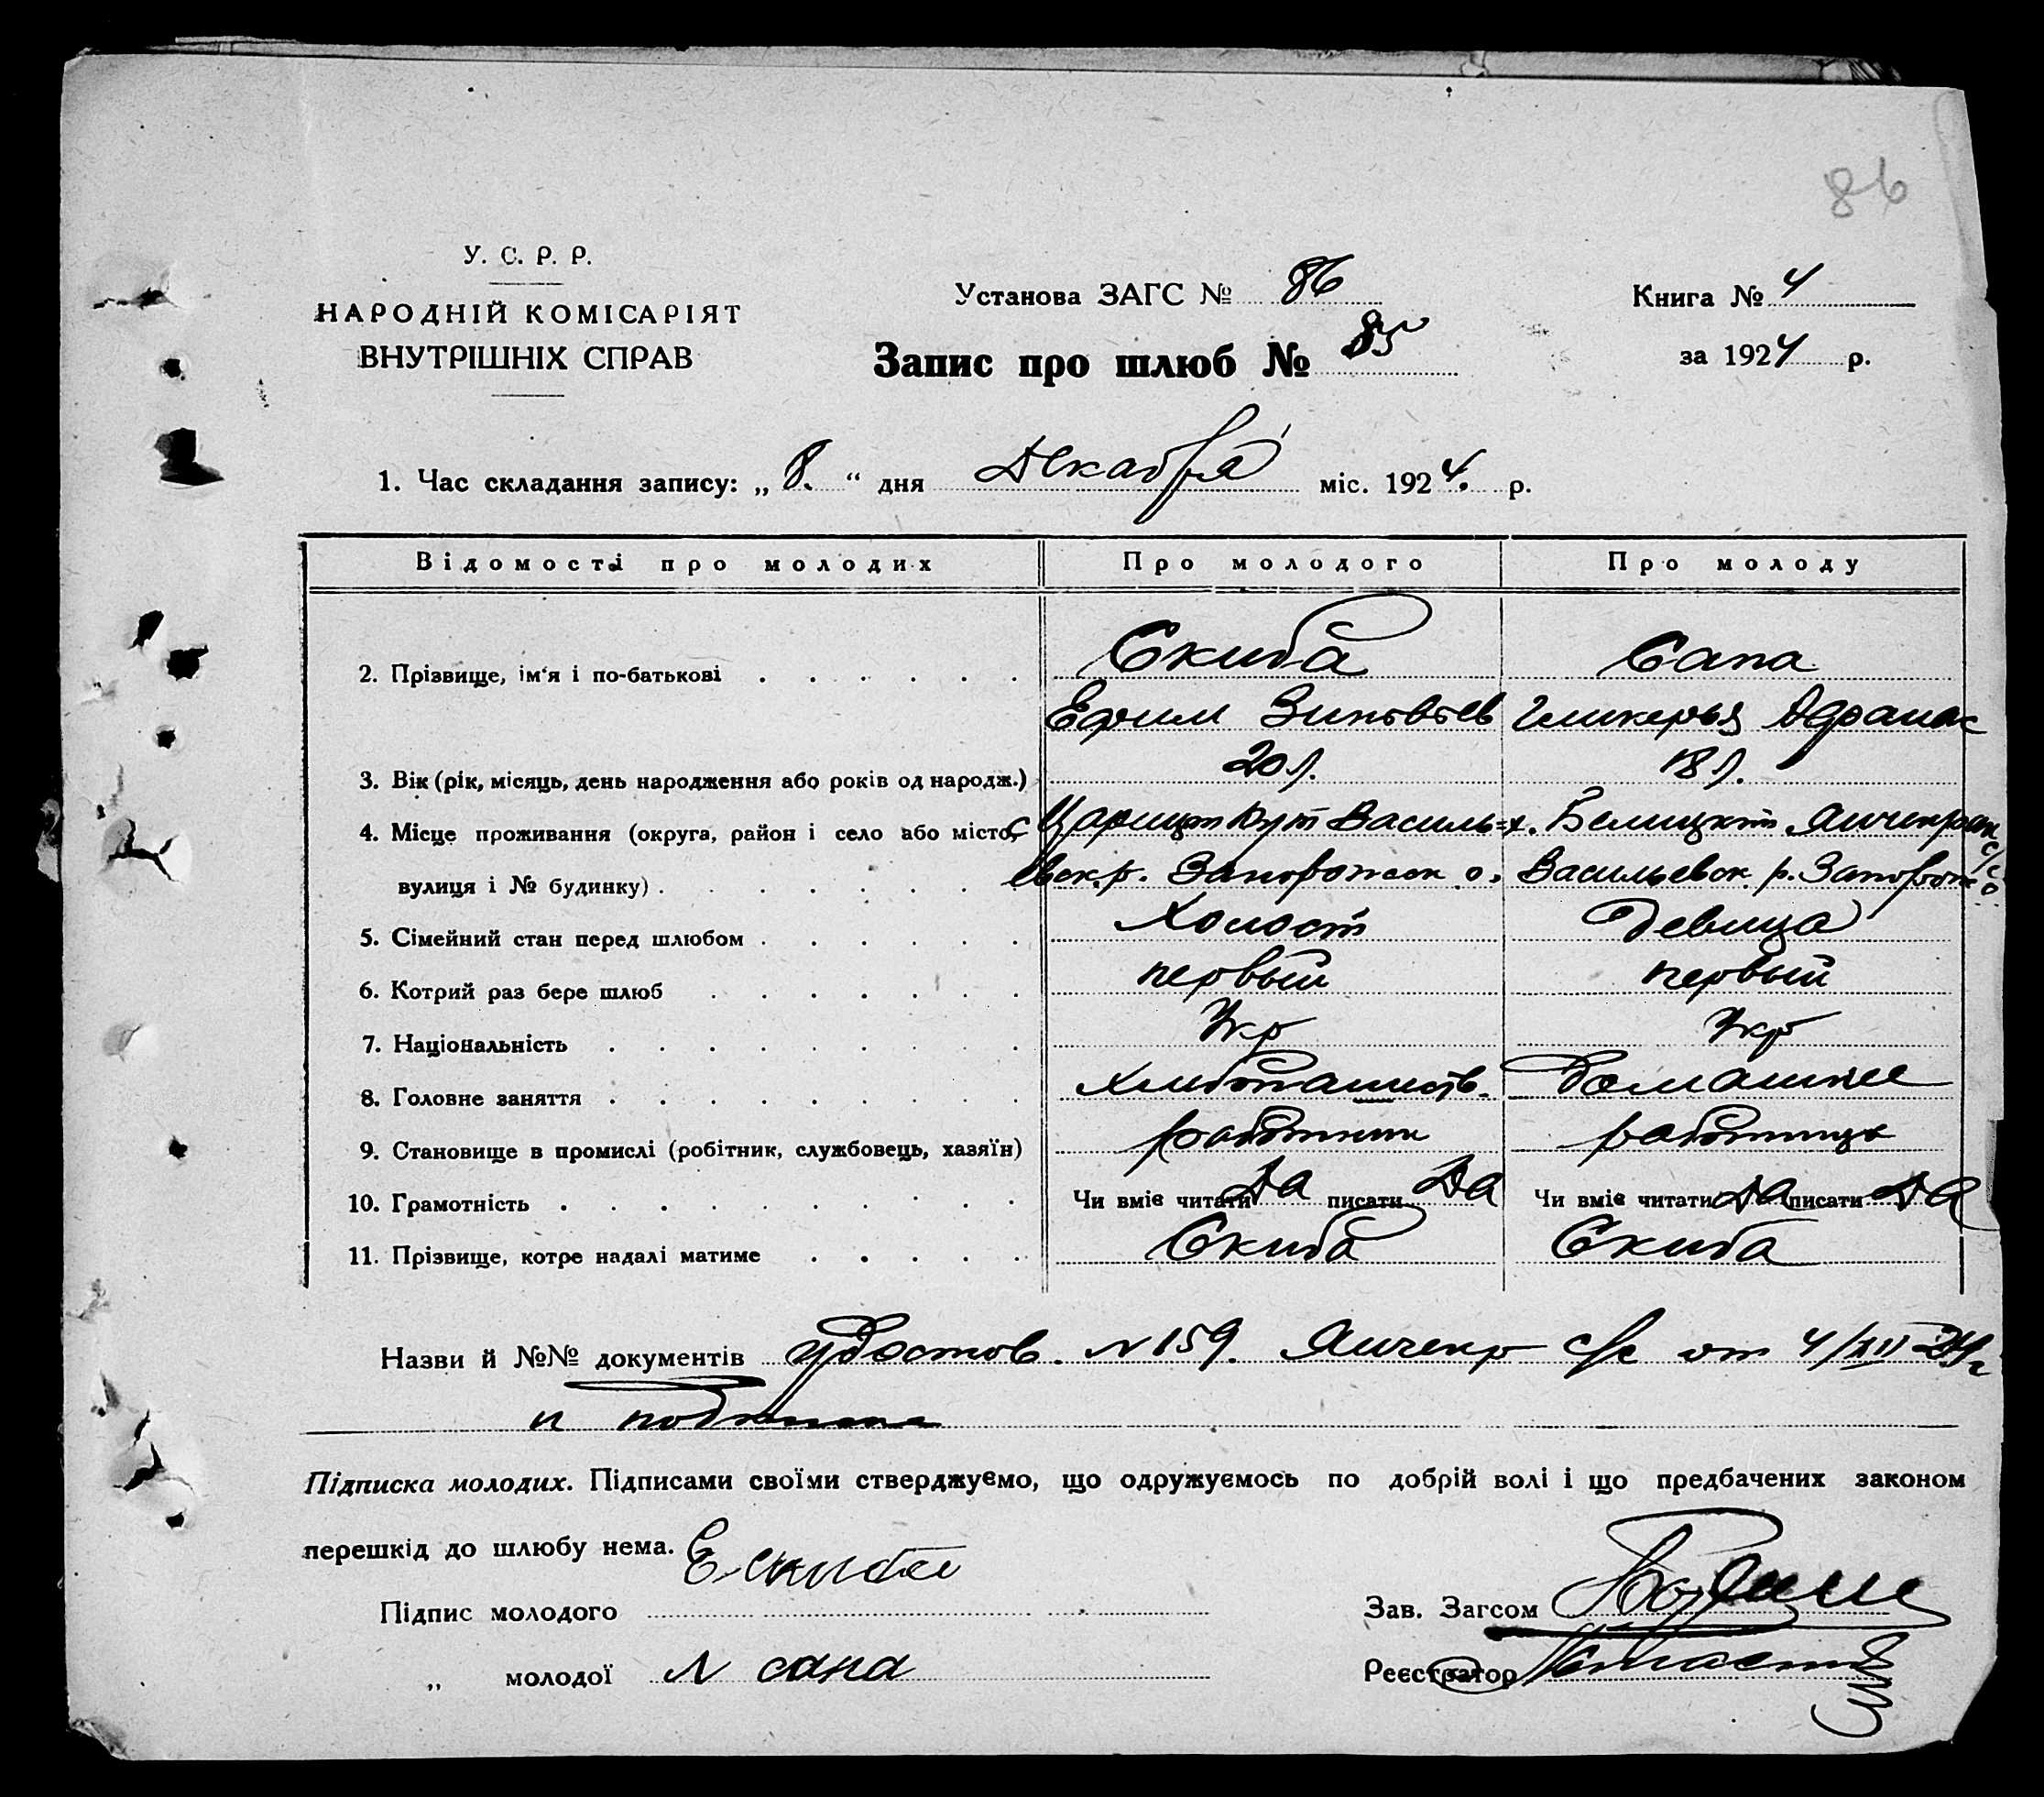 86
У. С. Р. Р.
НАРОДНІЙ КОМІСАРІЯТ
ВНУТРІШНІХ СПРАВ
Установа ЗАГС № 86
Запис про шлюб № 85
Книга № 4
за 1924 р.
1. Час складання запису: „ 8. “ дня Декабря міс. 1924. р.
Відомості про молодих Про молодого Про молоду
2. Прізвище, ім'я і по-батькові . . . . . . Скиба Сапа
Ефим Зиновьев Гликерья
3. Вік (рік, місяць, день народження або років од народж.) 20 л. 18 л.
4. Місце проживання (округа, район і село або місто, с Царицын Кут Василь= х.
вулиця і № будинку) . . . . . . . евск. р. Запорожск о. Васильевск. р. Запорож
5. Сімейний стан перед шлюбом . . . . . . Холост Девица
6. Котрий раз бере шлюб . . . . . . . первый первый
7. Національність . . . . . . . . . Укр Укр
8. Головне заняття . . . . . . . . . Домашнее
9. Становище в промислі (робітник, службовець, хазяїн) работник работница
10. Грамотність . . . . . . . . . Чи вміє читати Да писати Да Чи вміє читати Да писати Да
11. Прізвище, котре надалі матиме . . . . . Скиба Скиба
Назви й №№ документів удостов. № 159. Янчекр с/с от 4/XII 24 г
и подписка
Підписка молодих. Підписами своїми стверджуємо, що одружуємось по добрій волі і що предбачених законом
перешкід до шлюбу нема.
Підпис молодого Е Скиба
„ молодої сапа
Зав. Загсом
Реєстратор